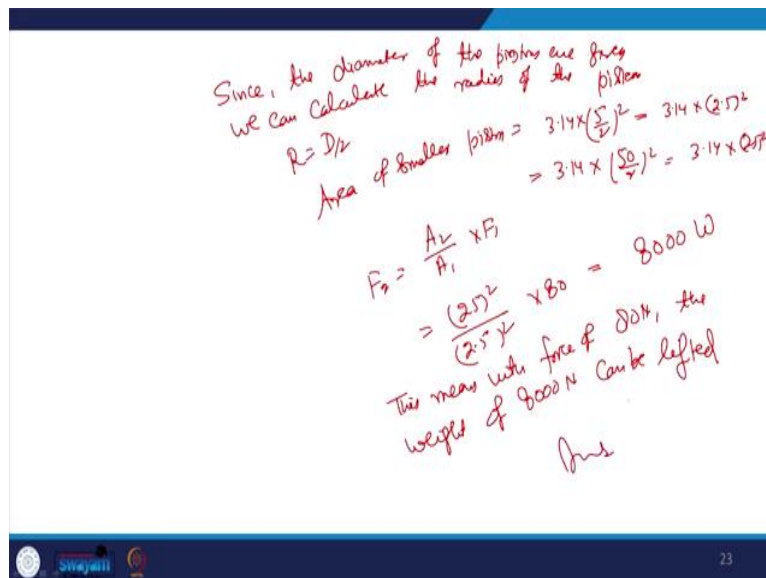 Since, the diameter of the pistons are given
we can calculate the radius of the piston
R = D/2
Area of smaller piston = 3.14 × (5/2)² = 3.14 × (2.5)²
= 3.14 × (50/2)² = 3.14 × (25)²
F₂ = A₂/A₁ × F₁
= (25)²/(2.5)² × 80 = 8000 W
This means with force of 80N, the
weight of 8000 N can be lifted
Ans
swayam
23